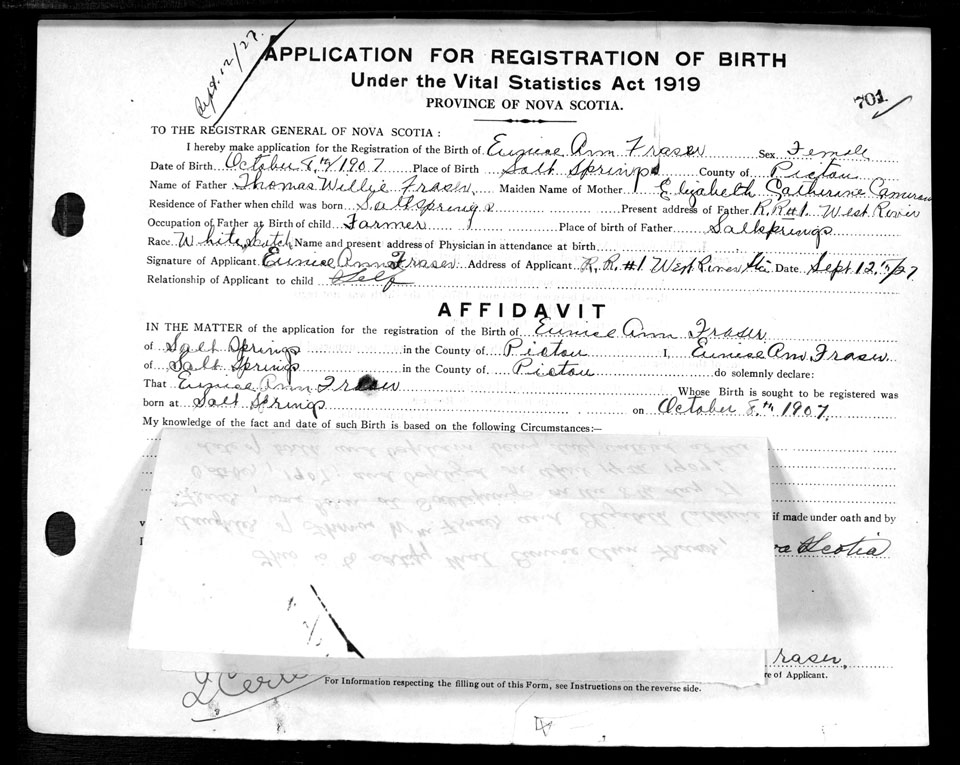 Sept. 12/27.
APPLICATION FOR REGISTRATION OF BIRTH
Under the Vital Statistics Act 1919
PROVINCE OF NOVA SCOTIA.
701
TO THE REGISTRAR GENERAL OF NOVA SCOTIA :
I hereby make application for the Registration of the Birth of Eunice Ann Fraser Sex Female
Date of Birth October 8,th/1907 Place of Birth Salt Springs County of Pictou
Name of Father Thomas Willie Fraser, Maiden Name of Mother Elizabeth Catherine Cameron
Residence of Father when child was born Saltsprings Present address of Father R.R#1. West River
Occupation of Father at Birth of child Farmer Place of birth of Father Saltsprings
Race White Scotch Name and present address of Physician in attendance at birth
Signature of Applicant Eunice Ann Fraser Address of Applicant R.R.#1 West River Sta. Date Sept 12,th/27.
Relationship of Applicant to child Self
AFFIDAVIT
IN THE MATTER of the application for the registration of the Birth of Eunice Ann Fraser
of Salt Springs in the County of Pictou I, Eunice Ann Fraser
of Salt Springs in the County of Pictou do solemnly declare:
That Eunice Ann Fraser Whose Birth is sought to be registered was
born at Salt Springs on October 8,th 1907.
My knowledge of the fact and date of such Birth is based on the following Circumstances:—
date of birth and baptism being
October, 1907 and baptized on
Fraser, was born at Saltsprings on the 8th day of
daughter of Thomas W. Fraser and Elizabeth Catherine
This is to certify that Eunice Ann Fraser,
if made under oath and by
Scotia
raser,
re of Applicant.
For Information respecting the filling out of this Form, see Instructions on the reverse side.